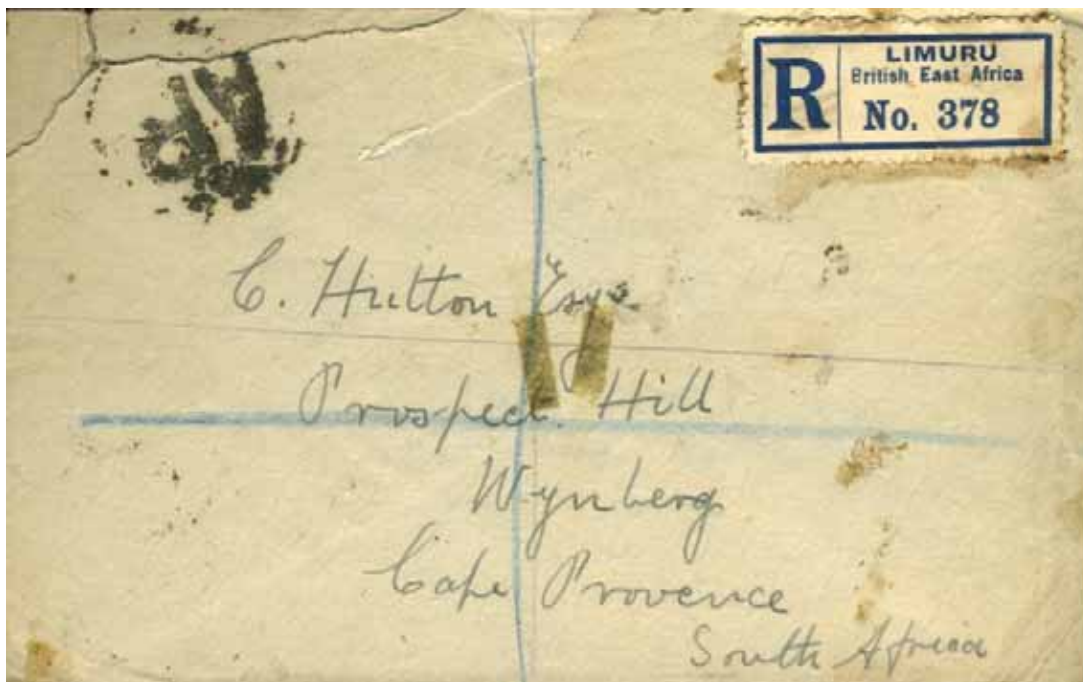 R
LIMURU
British East Africa
No. 378
C. Hutton Esq.
Prospect Hill
Wynberg
Cape Provence
South Africa